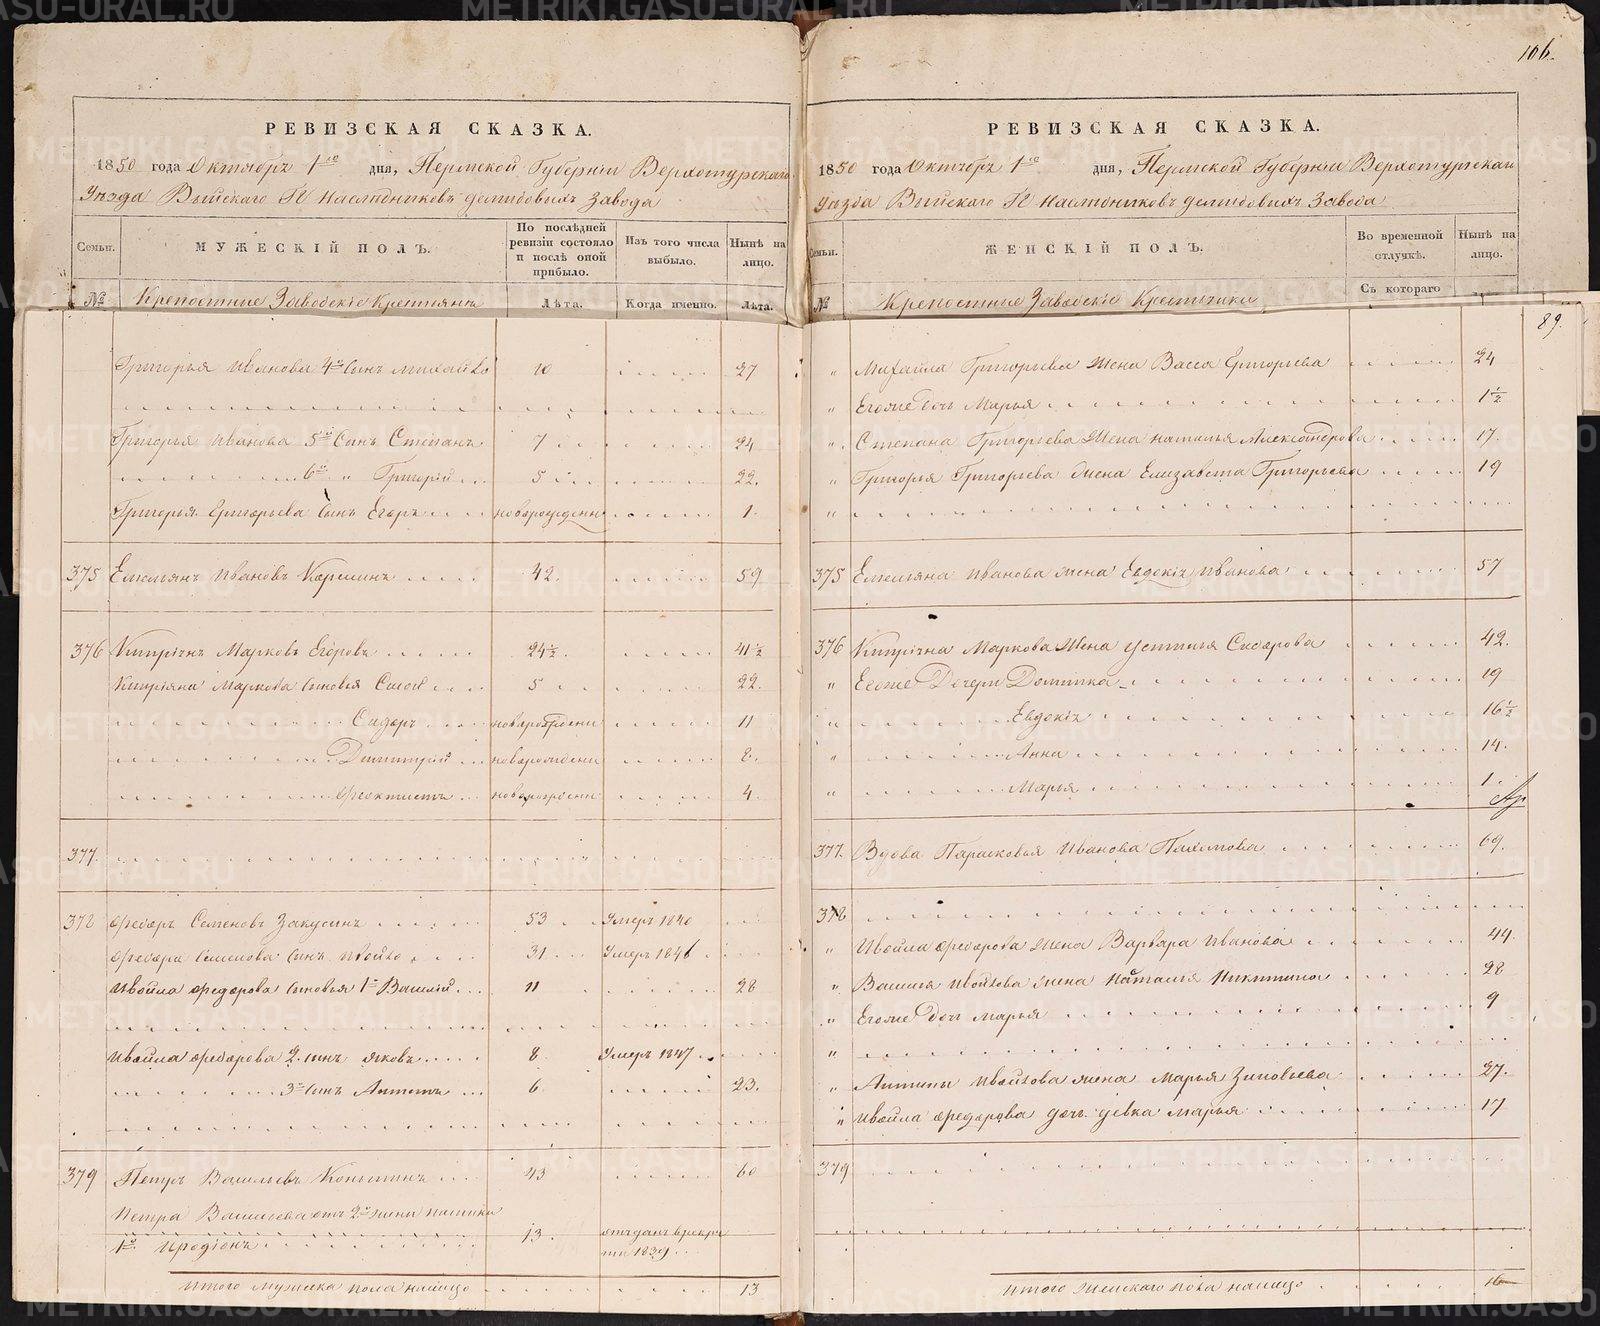 106.
РЕВИЗСКАЯ СКАЗКА.
1850 года Октября 1го дня, Пермской Губерніи Верхотурскаго
Уезда Выйскаго Гг Наследниковъ Демидовыхъ Завода
Семьи.
МУЖЕСКІЙ ПОЛЪ.
По послѣдней ревизіи состояло и послѣ оной прибыло.
Изъ того числа выбыло.
Нынѣ на лицо.
№ Крепостные Заводскіе Крестьяне
Лѣта.
Когда именно.
Лѣта.
Григорья Иванова 4й Сынъ Михайло 10 27
Григорья Иванова 5й Сынъ Степанъ 7 24
6й " Григорій 5 22.
Григорья Григорьева Сынъ Егоръ новорожденн 1.
375 Емельянъ Ивановъ 42. 59
376 Кипріянъ Марковъ Егоровъ 24½ 41½
Кипріяна Маркова Сыновья 5 22.
Сидоръ новорожденн 11
Димитрій новорожденн 8.
Феоктистъ новорожденн 4.
377.
378 Федоръ Семеновъ 53 Умеръ 1840
Федора Семенова Сынъ Ивойло 31 Умеръ 1846
Ивойла Федорова Сыновья 1й Василій 11 28
Ивойла Федорова 2. сынъ Яковъ 8 Умеръ 1847
3й Сынъ Антипъ 6 23.
379 Петръ Васильевъ 43 60
Петра Васильева отъ 2й жены
1й Иродіонъ 13. отъданъ в рекру
ты 1839
Итого Мужеска пола налицо 13
РЕВИЗСКАЯ СКАЗКА.
1850 года Октября 1го дня, Пермской Губерніи Верхотурскаго
Уезда Выйскаго Гг Наследниковъ Демидовыхъ Завода
Семьи.
ЖЕНСКІЙ ПОЛЪ.
Во временной отлучкѣ.
Нынѣ на лицо.
№ Крепостные Заводскіе Крестьянки
Съ котораго
89.
" Михайла Григорьева Жена Васса Григорьева 24
" Егоже дочь Марья 1½
" Степана Григорьева Жена Наталья Александрова 17.
" Григорья Григорьева Жена Елизавета Григорьева 19
"
375 Емельяна Иванова жена Евдокія Иванова 57
376 Кипріяна Маркова Жена Устинья Сидорова 42.
" Егоже Дочери Домника 19
" Евдокія 16½
" Анна 14.
" Марья 1.
377. Вдова Парасковья Иванова Пахомова 69.
378
" Ивойла Федорова жена Варвара Иванова 44.
" Василья Ивойлова жена Наталья Никитина 28
" Егоже дочь Марья 9
"
" Антипы Ивойлова жена Марья Зиновьева 27.
" Ивойла Федорова дочь девка Марья 17
379
Итого Женскаго пола налицо 16